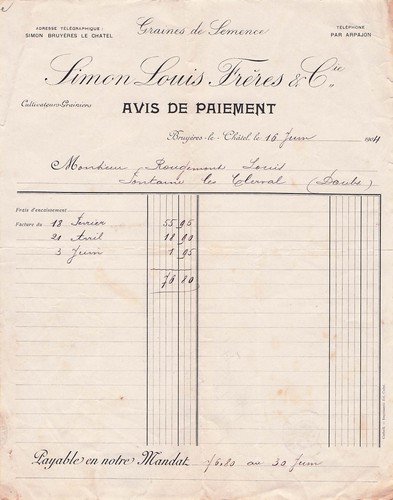 Graines de Semence
ADRESSE TÉLÉGRAPHIQUE:
SIMON BRUYÈRES LE CHATEL
TÉLÉPHONE
PAR ARPAJON
Simon Louis Frères & Cie
Cultivateurs-Grainiers
AVIS DE PAIEMENT
Bruyères-le-Châtel, le 16 Juin 1904
Monsieur Rougemont Louis
Fontaine les Clerval (Doubs)
Frais d'encaissement
Facture du 18 Février 55 95
21 Avril 18 80
3 Juin 1 95
76 80
Payable en notre Mandat 76,80 au 30 Juin